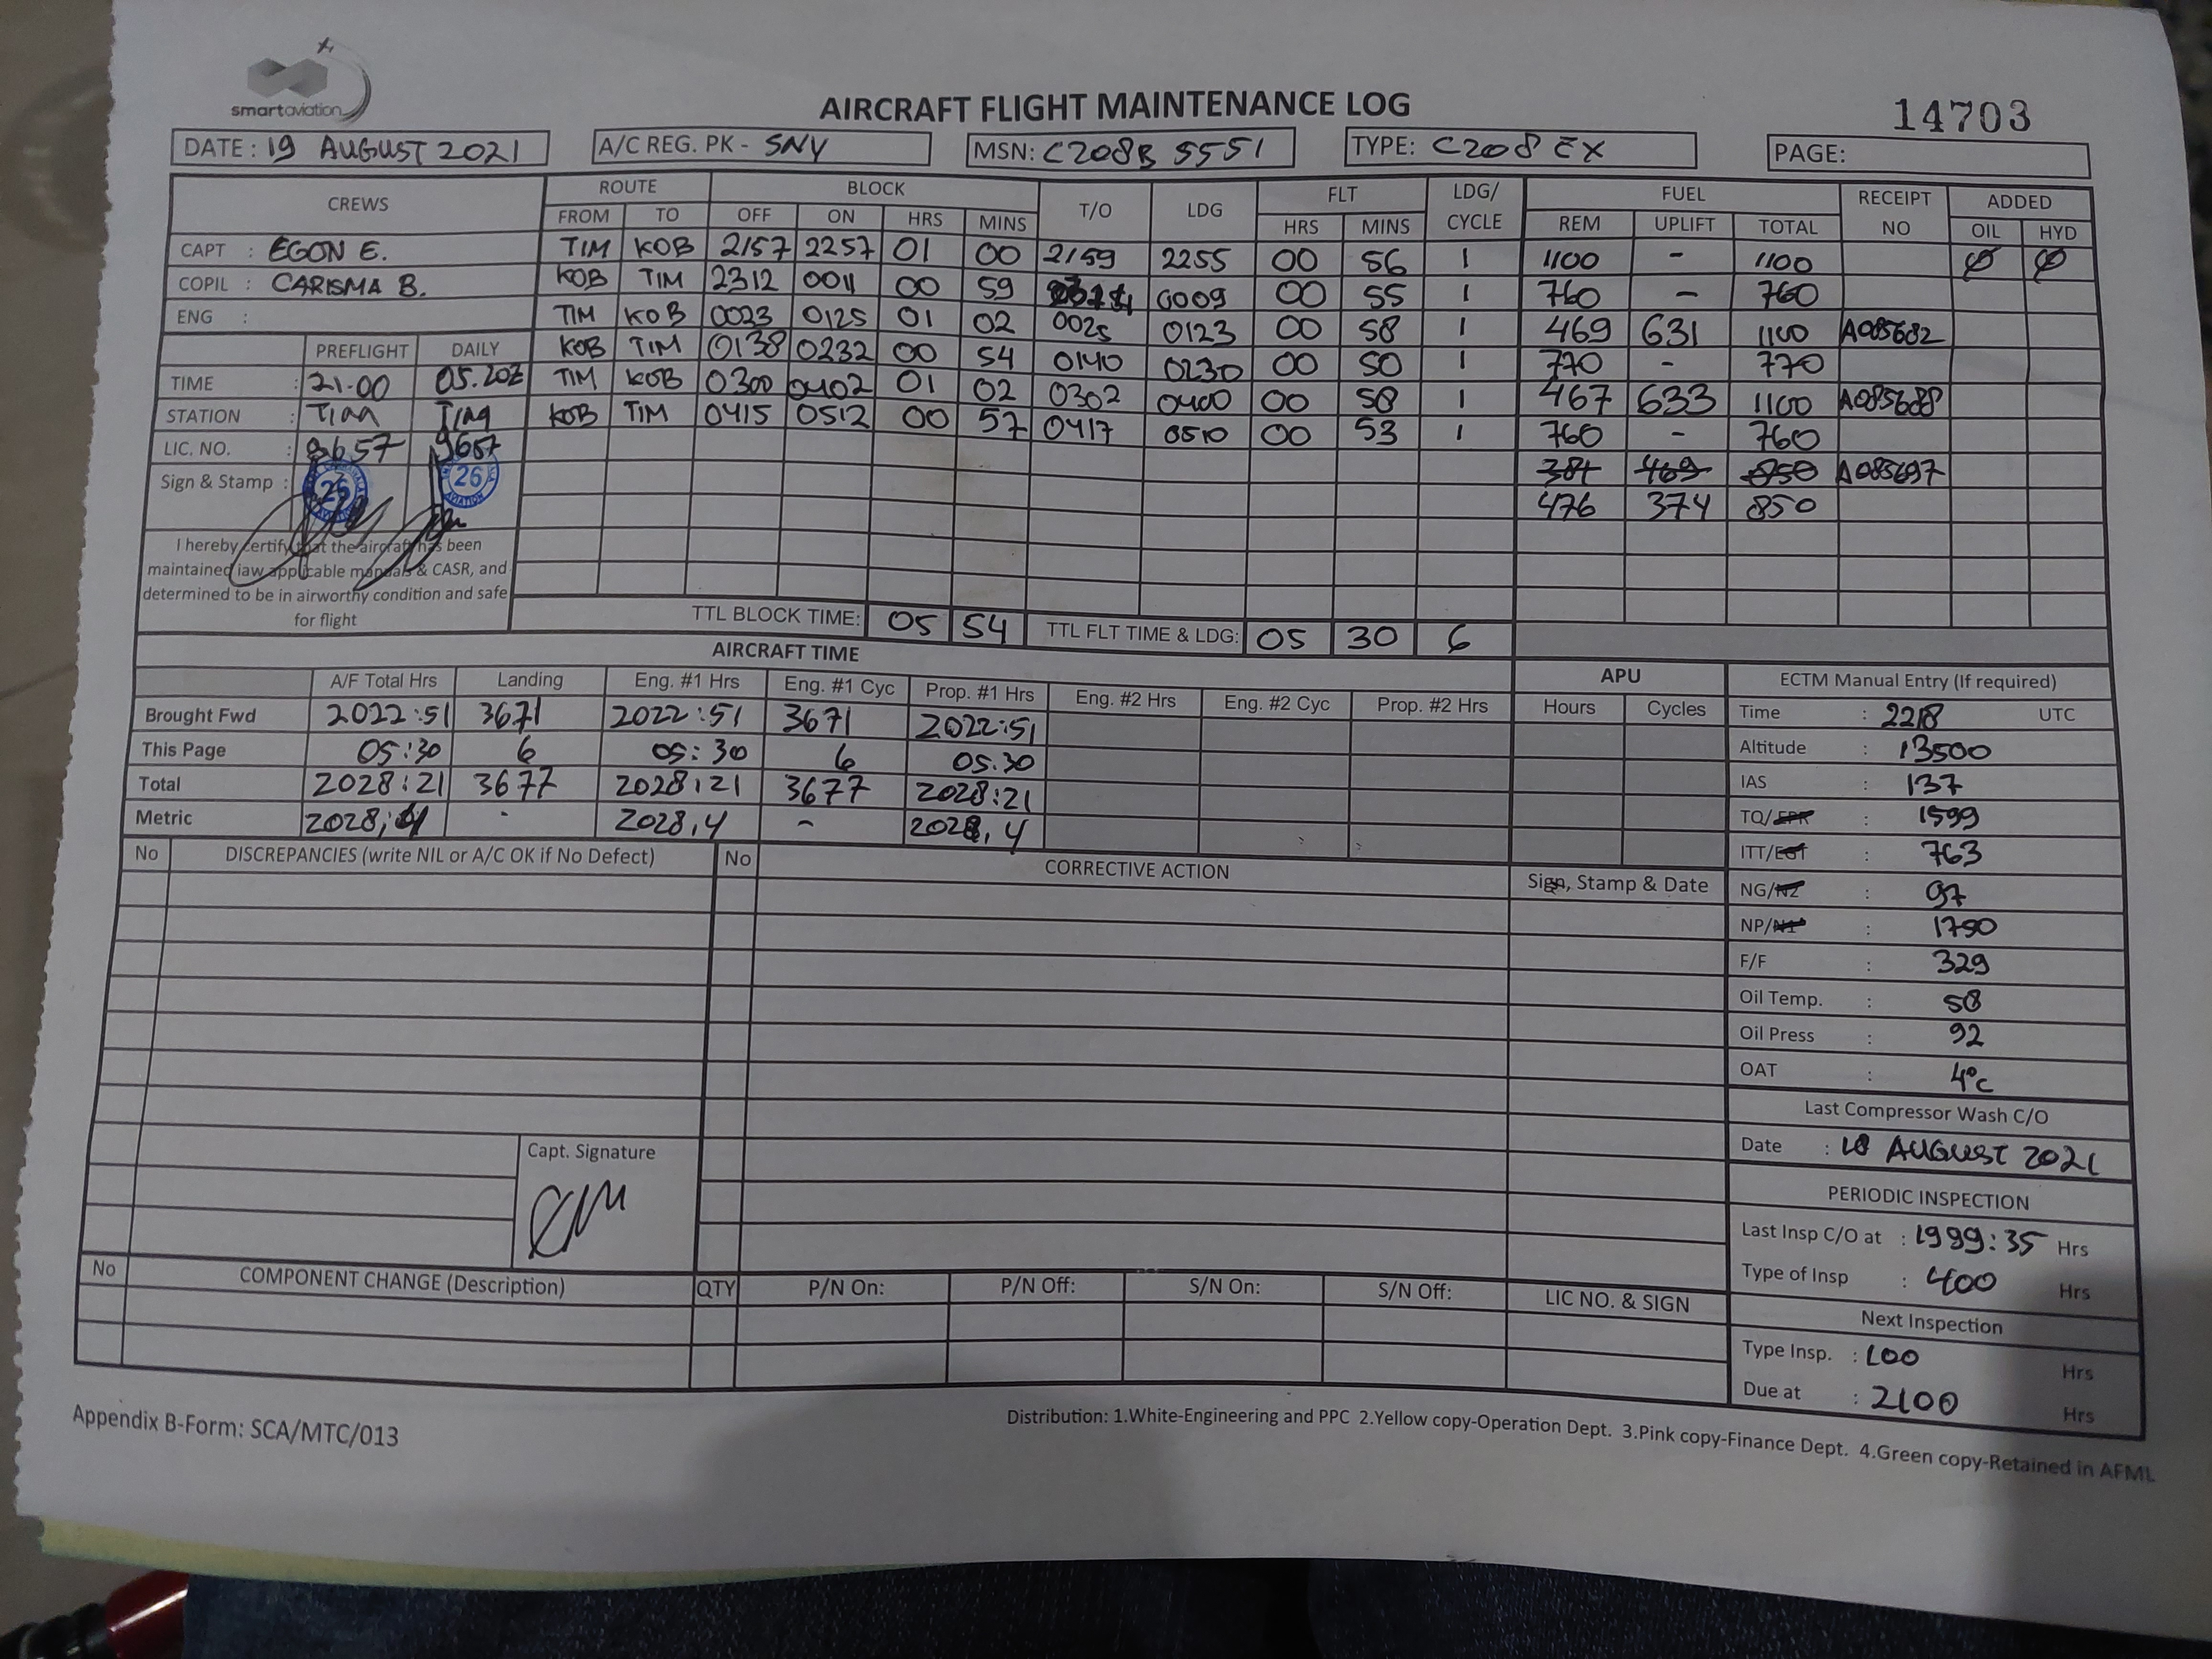 smartaviation
AIRCRAFT FLIGHT MAINTENANCE LOG
14703
DATE: 19 AUGUST 2021
A/C REG. PK - SNY
MSN: C208B 5551
TYPE: C208 EX
PAGE:
CREWS ROUTE BLOCK T/O LDG FLT LDG/ CYCLE FUEL RECEIPT NO ADDED
FROM TO OFF ON HRS MINS HRS MINS REM UPLIFT TOTAL OIL HYD
CAPT : EGON E. TIM KOB 2157 2257 01 00 2159 2255 00 56 1 1100 - 1100 Ø Ø
COPIL : CARISMA B. KOB TIM 2312 0011 00 59 0009 00 55 1 760 - 760
ENG : TIM KOB 0023 0125 01 02 0025 0123 00 58 1 469 631 1100 A085682
PREFLIGHT DAILY KOB TIM 0138 0232 00 54 0140 0230 00 50 1 770 - 770
TIME : 21.00 05.20Z TIM KOB 0300 0402 01 02 0302 0400 00 58 1 467 633 1100 A085688
STATION : TIM TIM KOB TIM 0415 0512 00 57 0417 0510 00 53 1 760 - 760
LIC. NO. : 9657 9657
384 469 850 A085697
Sign & Stamp : 26 26
AVIATION
476 374 850
I hereby certify that the aircraft has been
maintained iaw applicable manuals & CASR, and
determined to be in airworthy condition and safe
for flight
TTL BLOCK TIME: 05 54 TTL FLT TIME & LDG: 05 30 6
AIRCRAFT TIME
A/F Total Hrs Landing Eng. #1 Hrs Eng. #1 Cyc Prop. #1 Hrs Eng. #2 Hrs Eng. #2 Cyc Prop. #2 Hrs
Brought Fwd 2022:51 3671 2022:51 3671 2022:51
This Page 05:30 6 05:30 6 05.30
Total 2028:21 3677 2028:21 3677 2028:21
Metric 2028,4 - 2028,4 - 2028,4
APU
Hours Cycles
ECTM Manual Entry (If required)
Time : 2218 UTC
Altitude : 13500
IAS : 137
TQ/EPR : 1599
ITT/EGT : 763
NG/N2 : 97
NP/N1 : 1790
F/F : 329
Oil Temp. : 58
Oil Press : 92
OAT : 4°C
Last Compressor Wash C/O
Date : 18 AUGUST 2021
PERIODIC INSPECTION
Last Insp C/O at : 1999:35 Hrs
Type of Insp : 400 Hrs
Next Inspection
Type Insp. : 100 Hrs
Due at : 2100 Hrs
No DISCREPANCIES (write NIL or A/C OK if No Defect) No CORRECTIVE ACTION Sign, Stamp & Date
Capt. Signature
No COMPONENT CHANGE (Description) QTY P/N On: P/N Off: S/N On: S/N Off: LIC NO. & SIGN
Appendix B-Form: SCA/MTC/013
Distribution: 1.White-Engineering and PPC 2.Yellow copy-Operation Dept. 3.Pink copy-Finance Dept. 4.Green copy-Retained in AFML